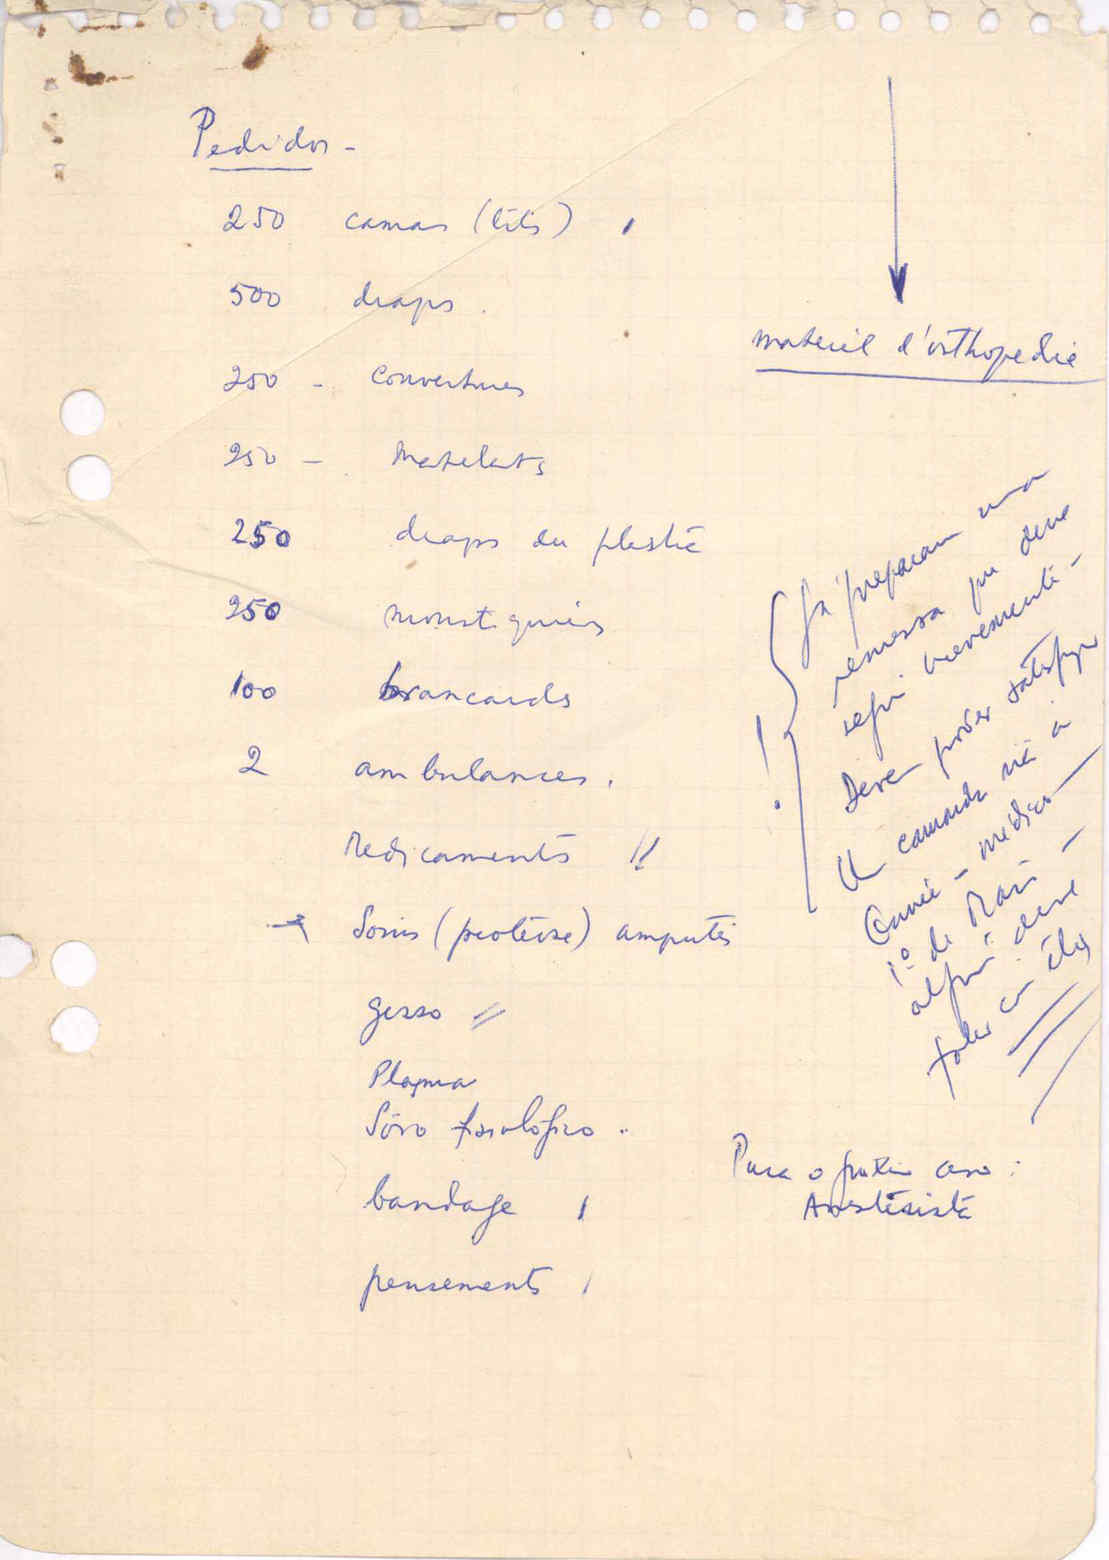 Pedidos -
250 camas (lits)
500 draps.
250 - couvertures
250 - Matelats
250 draps en plastic
250 moustiquiers
100 brancards
2 ambulances.
Medicaments !!
Soins (protèse) amputés
gesso
Plasma
Sôro fisiológico.
bandage
pensements
materiel d'orthopedie
Já preparam uma
remessa que deve
seguir brevemente -
Devem poder satisfazer
Um camarada irá à
médico
1º de Maio -
deve
falar com eles
Para o caso:
Anestesista